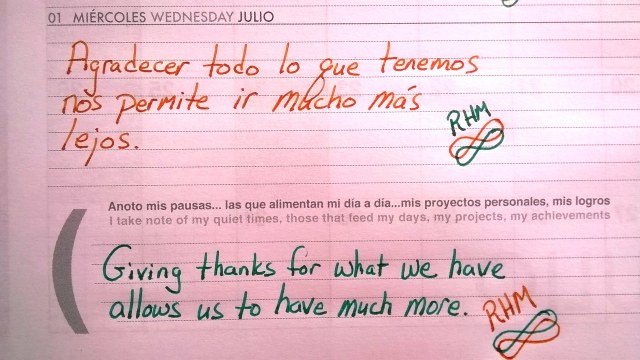 01 MIÉRCOLES WEDNESDAY JULIO
Agradecer todo lo que tenemos
nos permite ir mucho más
lejos.
RHM
Anoto mis pausas... las que alimentan mi día a día...mis proyectos personales, mis logros
I take note of my quiet times, those that feed my days, my projects, my achievements
Giving thanks for what we have
allows us to have much more.
RHM